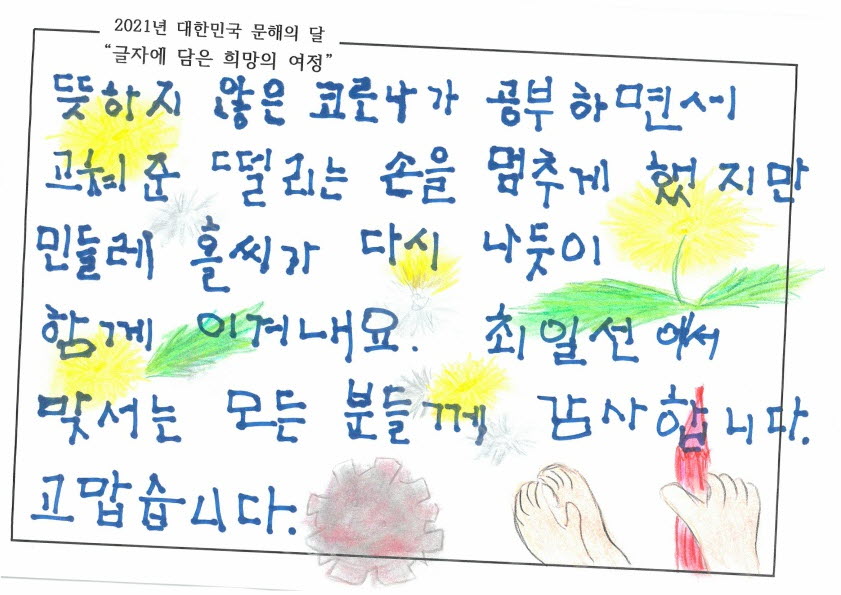 2021년 대한민국 문해의 달
“글자에 담은 희망의 여정”
뜻하지 않은 코로나가 공부하면서
고쳬준 떨리는 손을 멈추게 했지만
민들레 홀씨가 다시 나듯이
함께 이겨내요. 최일선에서
맞서는 모든 분들께 감사합니다.
고맙습니다.